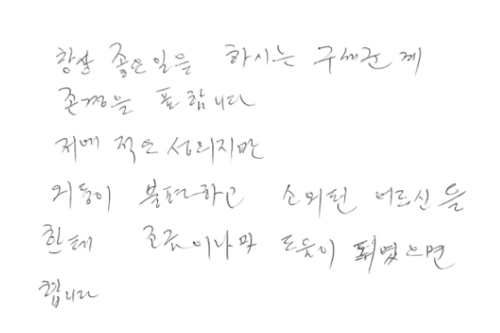 항상 좋은일을 하시는 구세군께
존경을 표합니다
저에 적은 성의지만
거동이 불편하고 소외된 어르신들
한테 조금이나마 도움이 퇴였으면
합니다